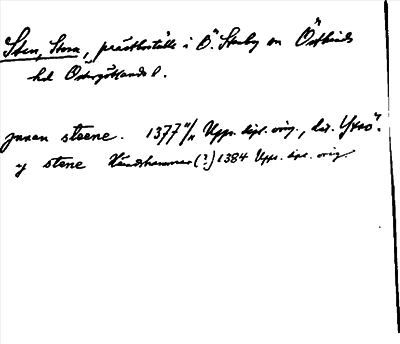 Sten, Stora, prästboställe i Ö. Stenby sn Östkinds
hd Östergötlands l.
jnxan steene. 1377 4/11 Upps. dipl. orig., dat. Ytrö.
y stene Händshammar (?) 1384 Upps. dipl. orig.